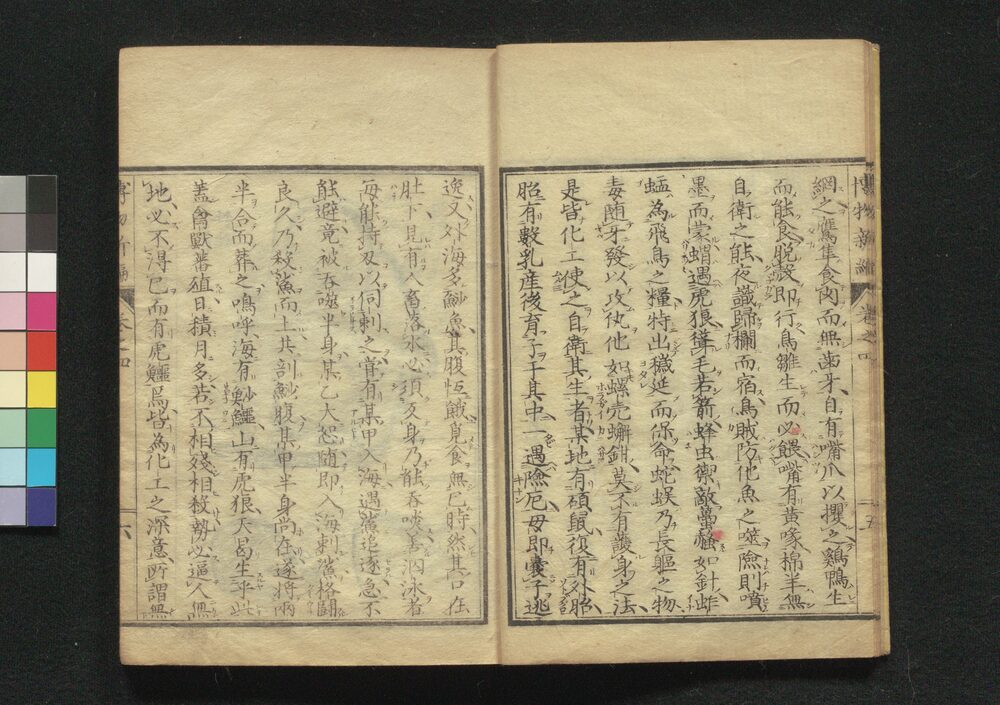 博物新編 卷之四 五
網之鷹隼食肉而無齒牙自有嘴爪以攫之鷄鴨生
而能食脫殼即行鳥雛生而必餵嘴有黃喙棉羊無
自衛之能夜識歸欄而宿烏賊防他魚之噬險則噴
墨而蒙蝟遇虎狼聳毛若箭蜂虫禦敵螫如針蚱
蜢為飛鳥之糧特出穢延而保命蛇蜈乃長軀之物
毒随牙發以攻仇他如螺壳蠏鉗莫不有護身之法
是皆化工使之自衛其生者某地有碩鼠復有外胎
胎有數乳産後育子于其中一遇險厄母即囊子逃
逸又外海多鯊魚其腹恒餓覓食無已時然其口在
肚下見有畜落水必須反身乃能吞啖善泅泳者
每能持刄以伺刺之嘗有某甲入海遇鯊追逐急不
能避竟被吞噬半身某乙大怒随即入海刺鯊格鬪
良久乃殺鯊而上共剖鯊腹其甲半身尚在遂將兩
半合而葬之嗚呼海有鯊鱷山有虎狼夭曷生乎此
蓋禽獸蕃殖日積月多若不相殘相殺勢必逼人無
地必不得已而有虎鱷焉皆為化工之深意所謂無
博物新編 卷之四 六